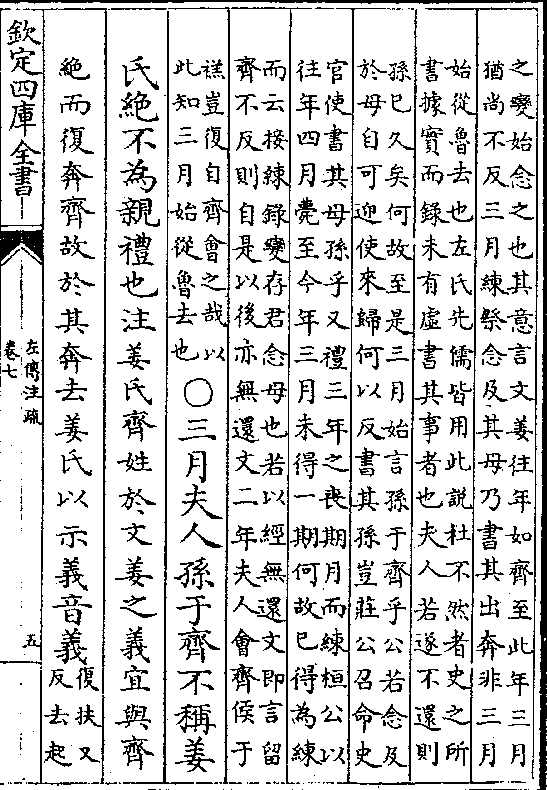 之變始念之也其意言文姜往年如齊至此年三月
猶尚不反三月練祭念及其母乃書其出奔非三月
始從魯去也左氏先儒皆用此說杜不然者史之所
書據實而錄未有虛書其事者也夫人若遂不還則
孫已久矣何故至是三月始言孫于齊乎公若念及
於母自可迎使來歸何以反書其孫豈莊公召命史
官使書其母孫乎又禮三年之喪期月而練桓公以
往年四月薨至今年三月未得一期何故已得為練
而云接練錄變存君念母也若以經無還文即言留
齊不反則自是以後亦無還文二年夫人會齊侯于
禚豈復自齊會之哉以
此知三月始從魯去也
○三月夫人孫于齊不稱姜
氏絶不為親禮也注姜氏齊姓於文姜之義宜與齊
絶而復奔齊故於其奔去姜氏以示義音義
復扶又
反去起
欽定四庫全書
左傳注疏
卷七
五